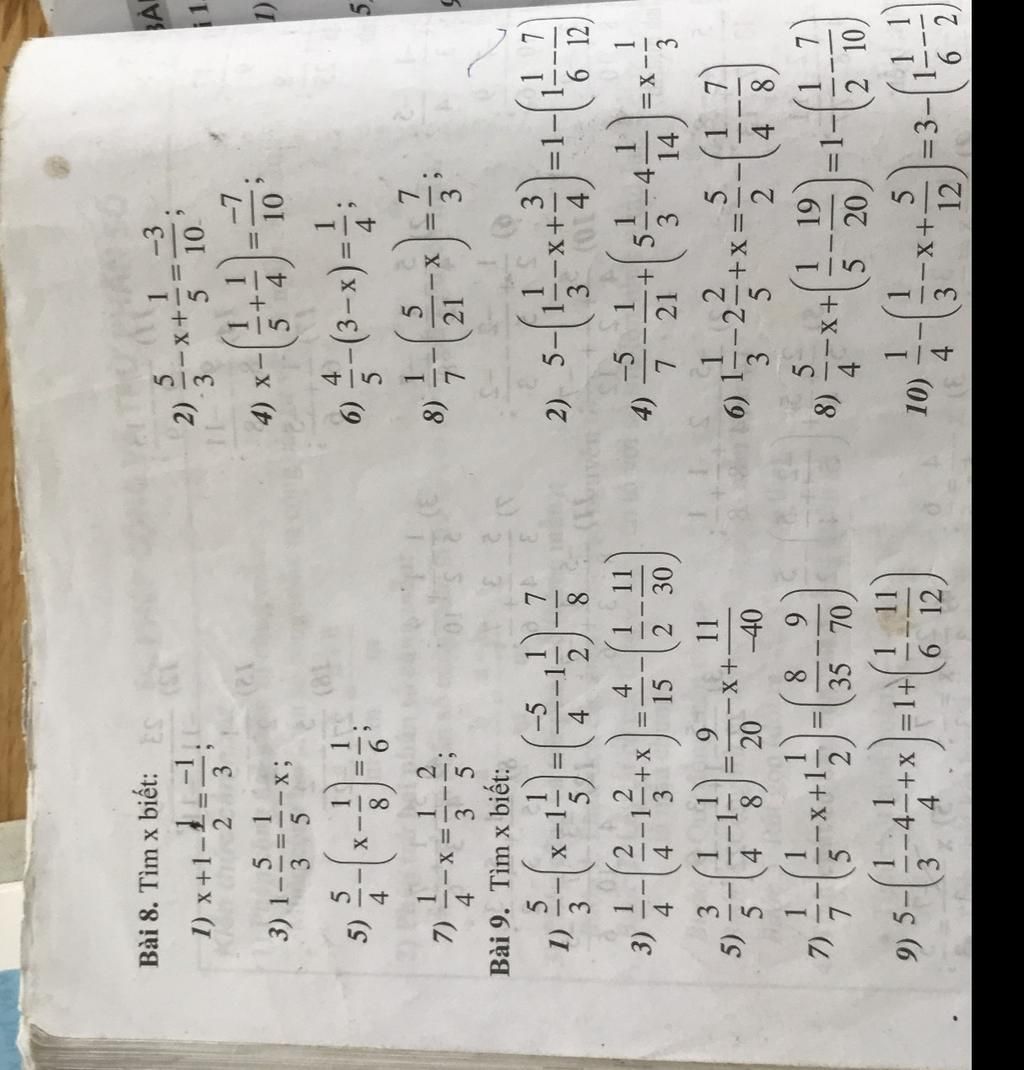 Bài 8. Tìm x biết:
1) x + 1 - 1/2 = -1/3;
2) 5/3 - x + 1/5 = -3/10;
3) 1 - 5/3 = 1/5 - x;
4) x - (1/5 + 1/4) = -7/10;
5) 5/4 - (x - 1/8) = 1/6;
6) 4/5 - (3 - x) = 1/4;
7) 1/4 - x = 1/3 - 2/5;
8) 1/7 - (5/21 - x) = 7/3;
Bài 9. Tìm x biết:
1) 5/3 - (x - 1 1/5) = (-5/4 - 1 1/2) - 7/8
2) 5 - (1 1/3 - x + 3/4) = 1 - (1 1/6 - 7/12)
3) 1/4 - (2/4 - 1 2/3 + x) = 4/15 - (1/2 - 11/30)
4) -5/7 - 1/21 + (5 1/3 - 4 1/14) = x - 1/3
5) 3/5 - (1/4 - 1 1/8) = 9/20 - x + 11/-40
6) 1 1/3 - 2 2/5 + x = 5/2 - (1/4 - 7/8)
7) 1/7 - (1/5 - x + 1 1/2) = (8/35 - 9/70)
8) 5/4 - x + (1/5 - 19/20) = 1 - (1/2 - 7/10)
9) 5 - (1/3 - 4 1/4 + x) = 1 + (1/6 - 11/12)
10) 1/4 - (1/3 - x + 5/12) = 3 - (1 1/6 - 1/2)